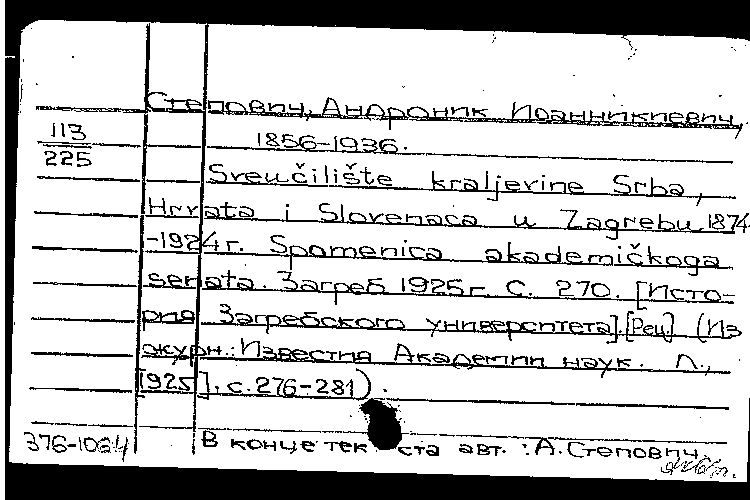 Степович, Андроник Иоанникиевич,
113
225
1856-1936.
Sveučilište kraljevine Srba,
Hrvata i Slovenaca u Zagrebu 1874
-1924 г. Spomenica akademičkoga
senata. Загреб 1925 г. С. 270. [Исто-
рия Загребского университета]. [Рец.] (Из
журн.: Известия Академии наук. Л.,
[925]. с. 276-281).
376-1064
В конце текста авт.: А. Степович.